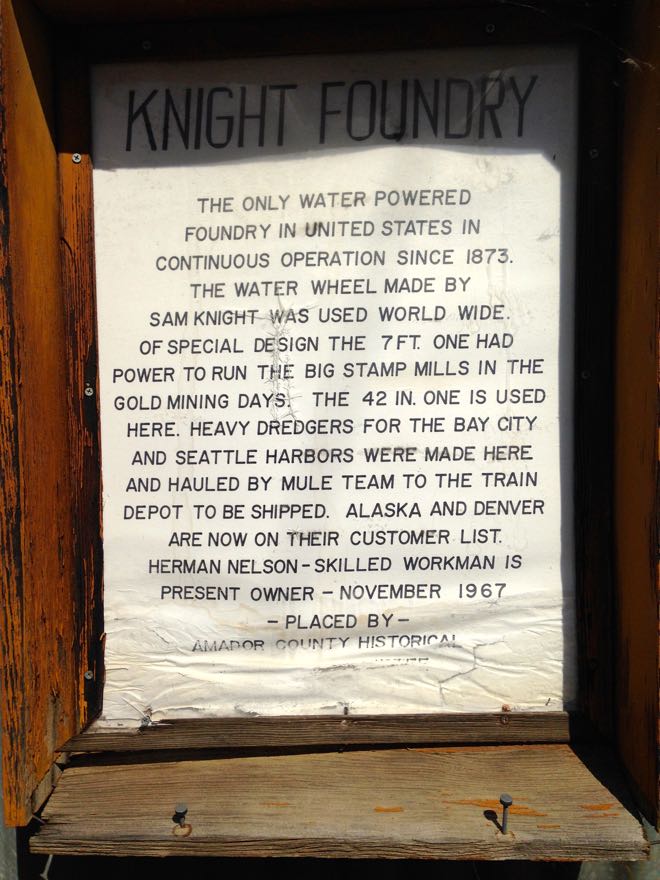 KNIGHT FOUNDRY
THE ONLY WATER POWERED
FOUNDRY IN UNITED STATES IN
CONTINUOUS OPERATION SINCE 1873.
THE WATER WHEEL MADE BY
SAM KNIGHT WAS USED WORLD WIDE.
OF SPECIAL DESIGN THE 7 FT. ONE HAD
POWER TO RUN THE BIG STAMP MILLS IN THE
GOLD MINING DAYS. THE 42 IN. ONE IS USED
HERE. HEAVY DREDGERS FOR THE BAY CITY
AND SEATTLE HARBORS WERE MADE HERE
AND HAULED BY MULE TEAM TO THE TRAIN
DEPOT TO BE SHIPPED. ALASKA AND DENVER
ARE NOW ON THEIR CUSTOMER LIST.
HERMAN NELSON - SKILLED WORKMAN IS
PRESENT OWNER - NOVEMBER 1967
- PLACED BY -
AMADOR COUNTY HISTORICAL